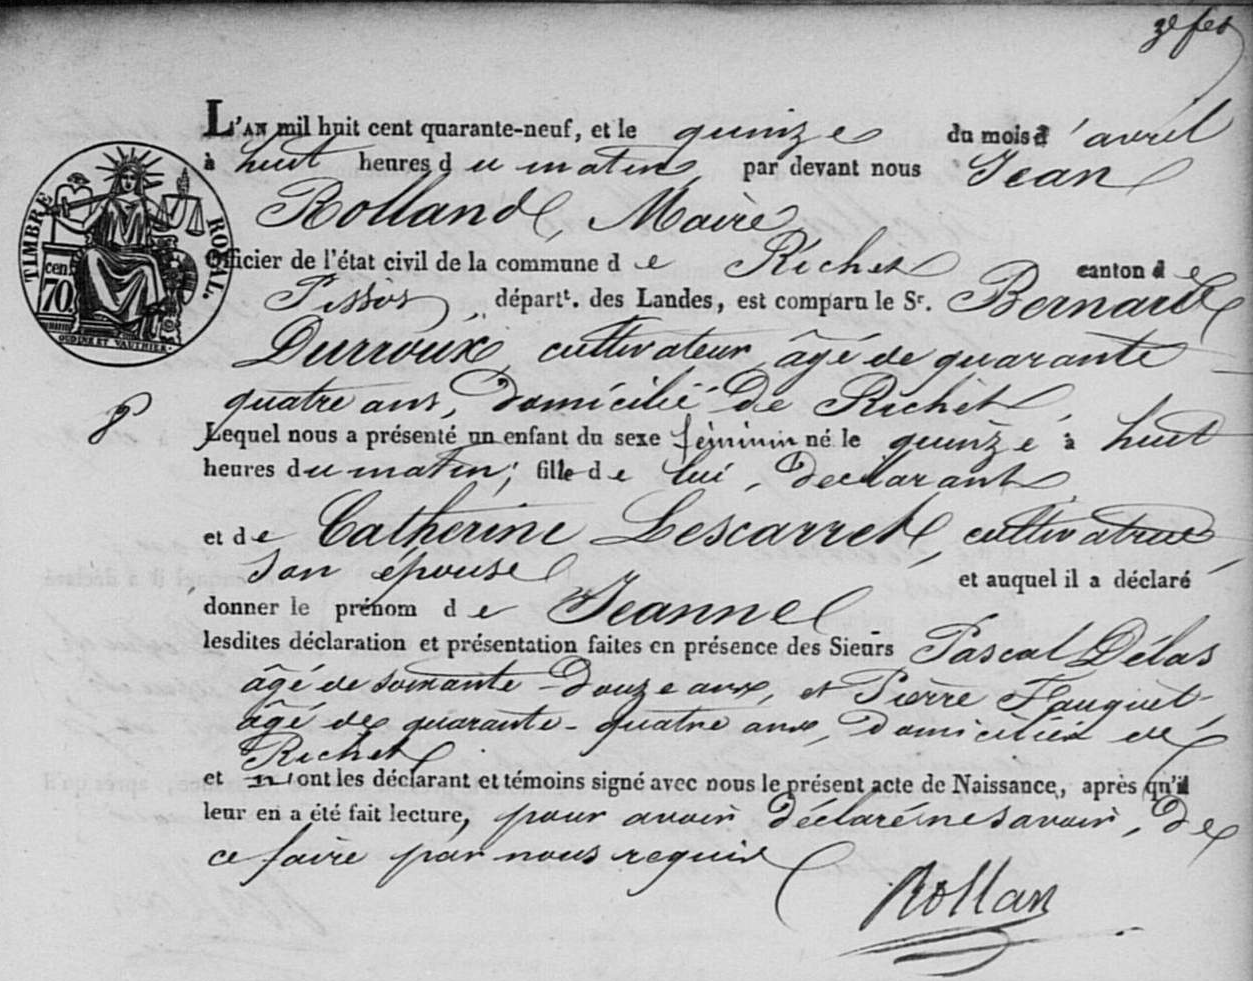 3e fet
L'AN mil huit cent quarante-neuf, et le quinze du mois d'avril
à huit heures du matin, par devant nous Jean
Rolland, Maire
Officier de l'état civil de la commune de Richet canton de
Pissos, départt. des Landes, est comparu le Sr. Bernard
Durroux, cultivateur, âgé de quarante
quatre ans, domicilié de Richet,
Lequel nous a présenté un enfant du sexe féminin né le quinze à huit
heures du matin; fille de lui, declarant
et de Catherine Lescarret, cultivatrice
son épouse et auquel il a déclaré
donner le prénom de Jeanne
lesdites déclaration et présentation faites en présence des Sieurs Pascal Délas
âgé de soixante-douze ans, et Pierre Fauquet,
âgé de quarante-quatre ans, domiciliés de
Richet
et n'ont les déclarant et témoins signé avec nous le présent acte de Naissance, après qu'il
leur en a été fait lecture, pour avoir déclaré ne savoir, de
ce faire par nous requis
Rollan
TIMBRE ROYAL.
cen
70.
OUDINE ET VAUTHIER.
8